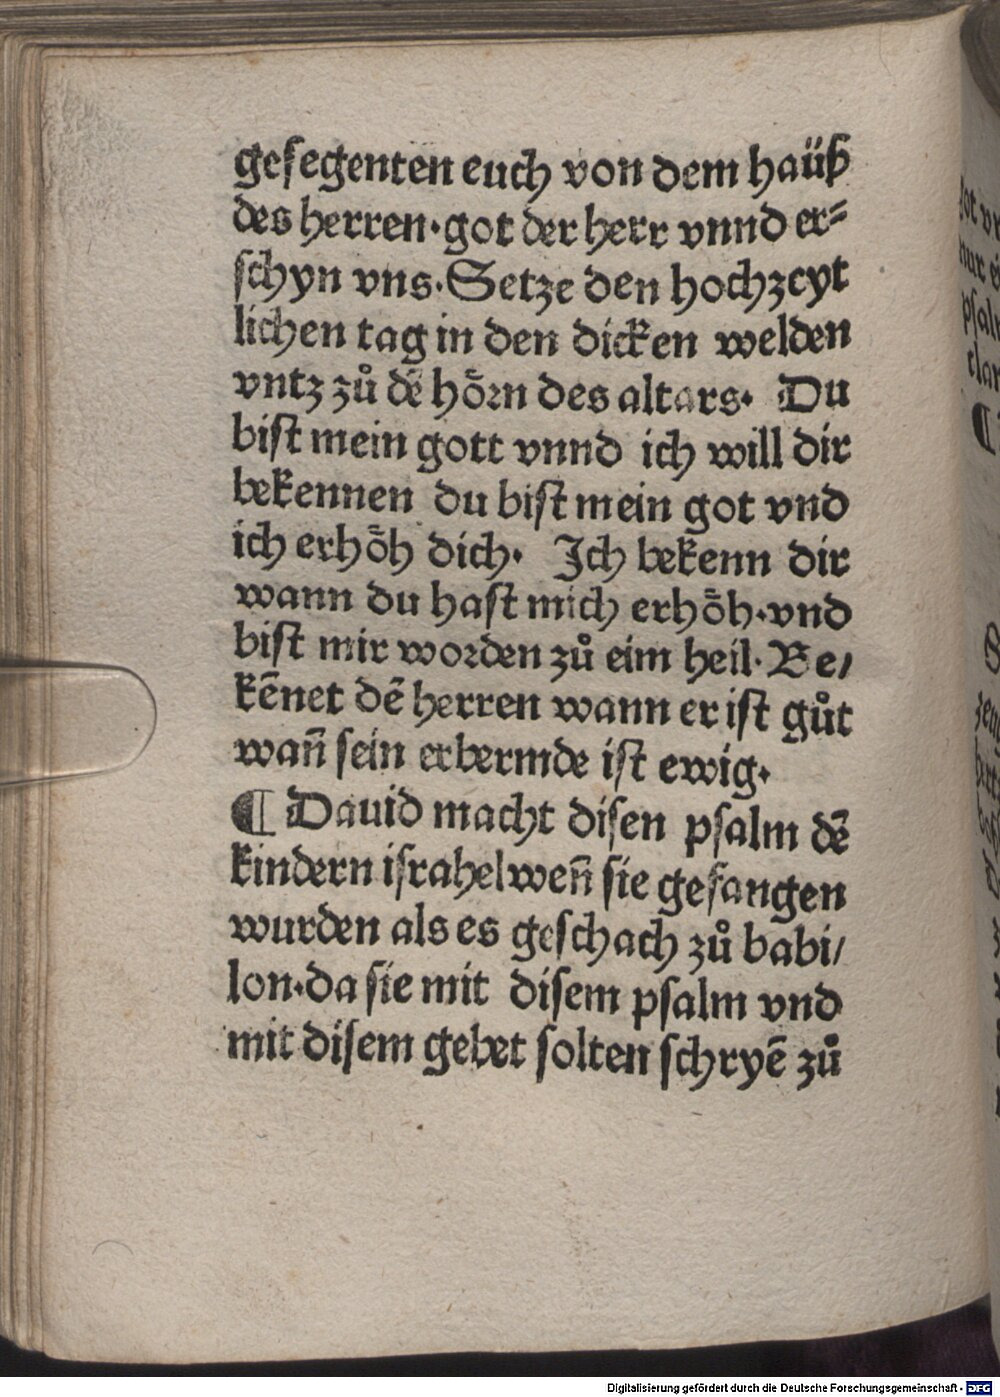 geſegenten euch von dem haüß
des herren·got der herr vnnd er⸗
ſchyn vns·Setze den hochzeyt
lichen tag in den dicken welden
vntz zů dē hoͤrn des altars· Du
biſt mein gott vnnd ich will dir
bekennen du biſt mein got vnd
ich erhoͤh dich· Ich bekenn dir
wann du haſt mich erhoͤh·vnd
biſt mir worden zů eim heil·Be/
kēnet dē herren wann er iſt gůt
wañ ſein erbermde iſt ewig·
¶ Dauid macht diſen pſalm dē
kindern iſrahel weñ ſie gefangen
wurden als es geſchach zů babi/
lon·da ſie mit diſem pſalm vnd
mit diſem gebet ſolten ſchryē zů
Digitalisierung gefördert durch die Deutsche Forschungsgemeinschaft - DFG